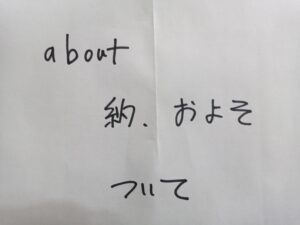 about
納、およそ
ついて